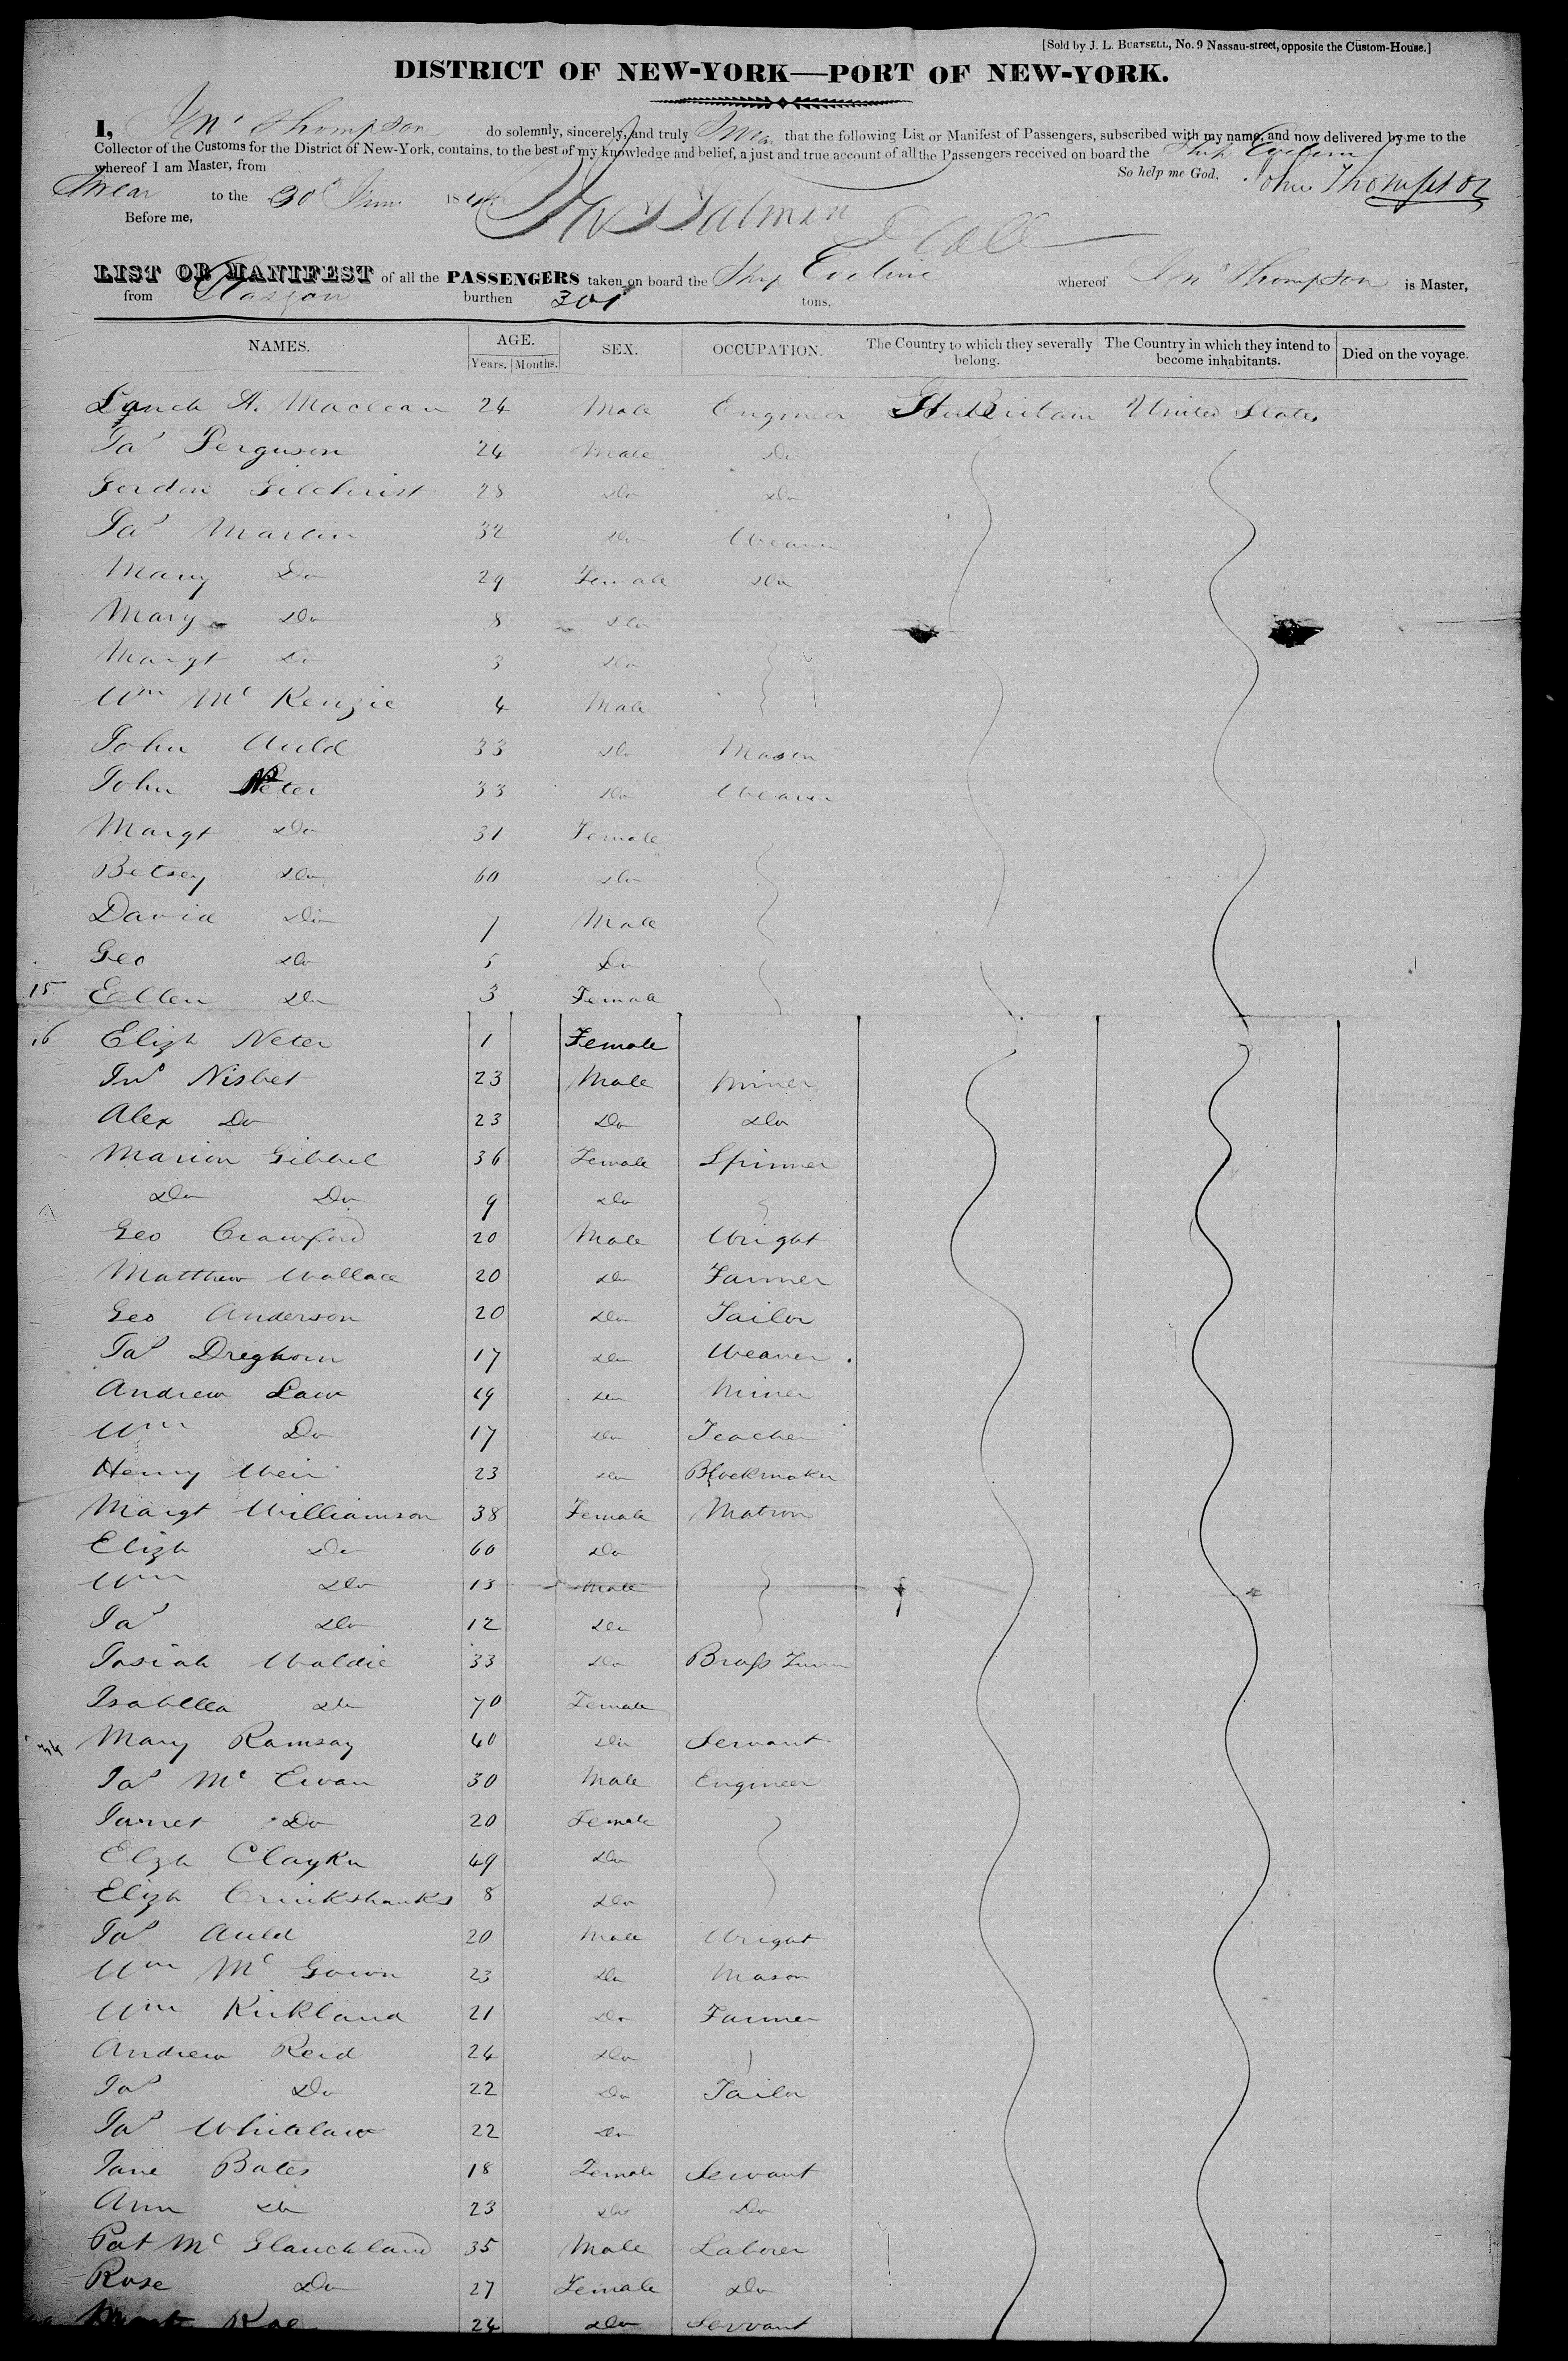 [Sold by J. L. BURTSELL, No. 9 Nassau-street, opposite the Custom-House.]
DISTRICT OF NEW-YORK—PORT OF NEW-YORK.
I, Jnº Thompson do solemnly, sincerely, and truly Swear that the following List or Manifest of Passengers, subscribed with my name, and now delivered by me to the
Collector of the Customs for the District of New-York, contains, to the best of my knowledge and belief, a just and true account of all the Passengers received on board the Ship Eveline
whereof I am Master, from So help me God. John Thompson
Swear to the 30 June 184
Before me,
LIST OR MANIFEST of all the PASSENGERS taken on board the Ship Eveline whereof Jnº Thompson is Master,
from Glasgow burthen 301 tons,
NAMES. AGE. SEX. OCCUPATION. The Country to which they severally belong. The Country in which they intend to become inhabitants. Died on the voyage.
Years. Months.
A. Maclean 24 Male Engineer Gt Britain United States
Jas Ferguson 24 Male Do
Gordon Gilchrist 28 Do Do
Jas Martin 32 Do Weaver
Mary Do 29 Female Do
Mary Do 8 Do
Margt Do 3 Do
Wm Mc Kenzie 4 Male
John Auld 33 Do Mason
John Neter 33 Do Weaver
Margt Do 31 Female
Betsey Do 60 Do
David Do 7 Male
Geo Do 5 Do
15 Ellen Do 3 Female
16 Elizh Neter 1 Female
Jnº Nisbet 23 Male Miner
Alex Do 23 Do Do
Marion 36 Female Spinner
Do Do 9 Do
Geo Crawford 20 Male Wright
Matthew Wallace 20 Do Farmer
Geo Anderson 20 Do Tailor
Jas Dreghorn 17 Do Weaver
Andrew Law 19 Do Miner
Wm Do 17 Do Teacher
Henry Weir 23 Do Blockmaker
Margt Williamson 38 Female Matron
Elizh Do 60 Do
Wm Do 13 Male
Jas Do 12 Do
Josiah Waldie 33 Do Brass
Isabella Do 70 Female
34 Mary Ramsay 40 Do Servant
Jas Mc Ewan 30 Male Engineer
Jannet Do 20 Female
Elzh 49 Do
Elizh Cruikshanks 8 Do
Jas Auld 20 Male Wright
Wm Mc Gown 23 Do Mason
Wm Kirkland 21 Do Farmer
Andrew Reid 24 Do
Jas Do 22 Do Tailor
Jas Whitelaw 22 Do
Jane Bates 18 Female Servant
Ann Do 23 Do Do
Pat Mc Glauchland 35 Male Laborer
Rose Do 27 Female Do
24 Do Servant